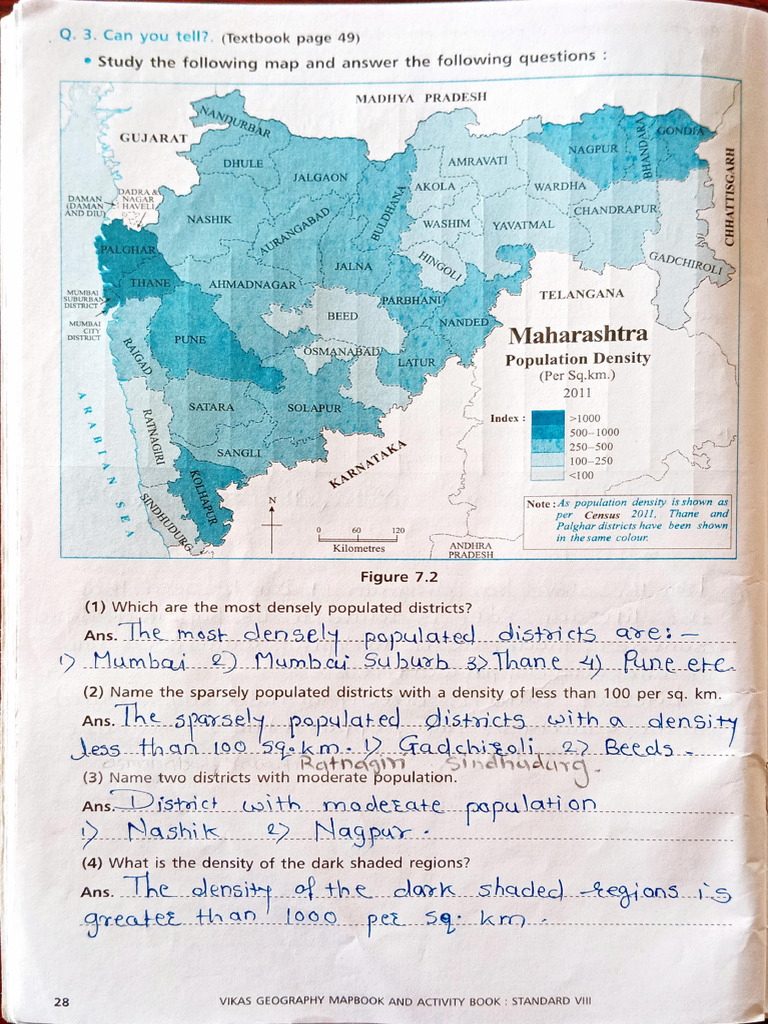 Q. 3. Can you tell?. (Textbook page 49)
• Study the following map and answer the following questions :
MADHYA PRADESH
GUJARAT
NANDURBAR
DHULE
JALGAON
BULDHANA
AKOLA
AMRAVATI
NAGPUR
BHANDARA
GONDIA
WARDHA
CHHATTISGARH
DAMAN
(DAMAN
AND DIU)
DADRA &
NAGAR
HAVELI
NASHIK
AURANGABAD
WASHIM
YAVATMAL
CHANDRAPUR
PALGHAR
THANE
AHMADNAGAR
JALNA
HINGOLI
GADCHIROLI
MUMBAI
SUBURBAN
DISTRICT
MUMBAI
CITY
DISTRICT
BEED
PARBHANI
NANDED
TELANGANA
RAIGAD
PUNE
OSMANABAD
LATUR
Maharashtra
Population Density
(Per Sq.km.)
2011
ARABIAN SEA
RATNAGIRI
SATARA
SOLAPUR
SANGLI
KOLHAPUR
SINDHUDURG
KARNATAKA
Index :
>1000
500–1000
250–500
100–250
<100
N
0 60 120
Kilometres
ANDHRA
PRADESH
Note : As population density is shown as
per Census 2011, Thane and
Palghar districts have been shown
in the same colour.
Figure 7.2
(1) Which are the most densely populated districts?
Ans. The most densely populated districts are:-
1) Mumbai 2) Mumbai Suburb 3) Thane 4) Pune etc.
(2) Name the sparsely populated districts with a density of less than 100 per sq. km.
Ans. The sparsely populated districts with a density
less than 100 sq.km. 1) Gadchiroli 2) Beeds.
Ratnagiri Sindhudurg.
(3) Name two districts with moderate population.
Ans. District with moderate population
1) Nashik 2) Nagpur.
(4) What is the density of the dark shaded regions?
Ans. The density of the dark shaded regions is
greater than 1000 per sq. km.
28 VIKAS GEOGRAPHY MAPBOOK AND ACTIVITY BOOK : STANDARD VIII